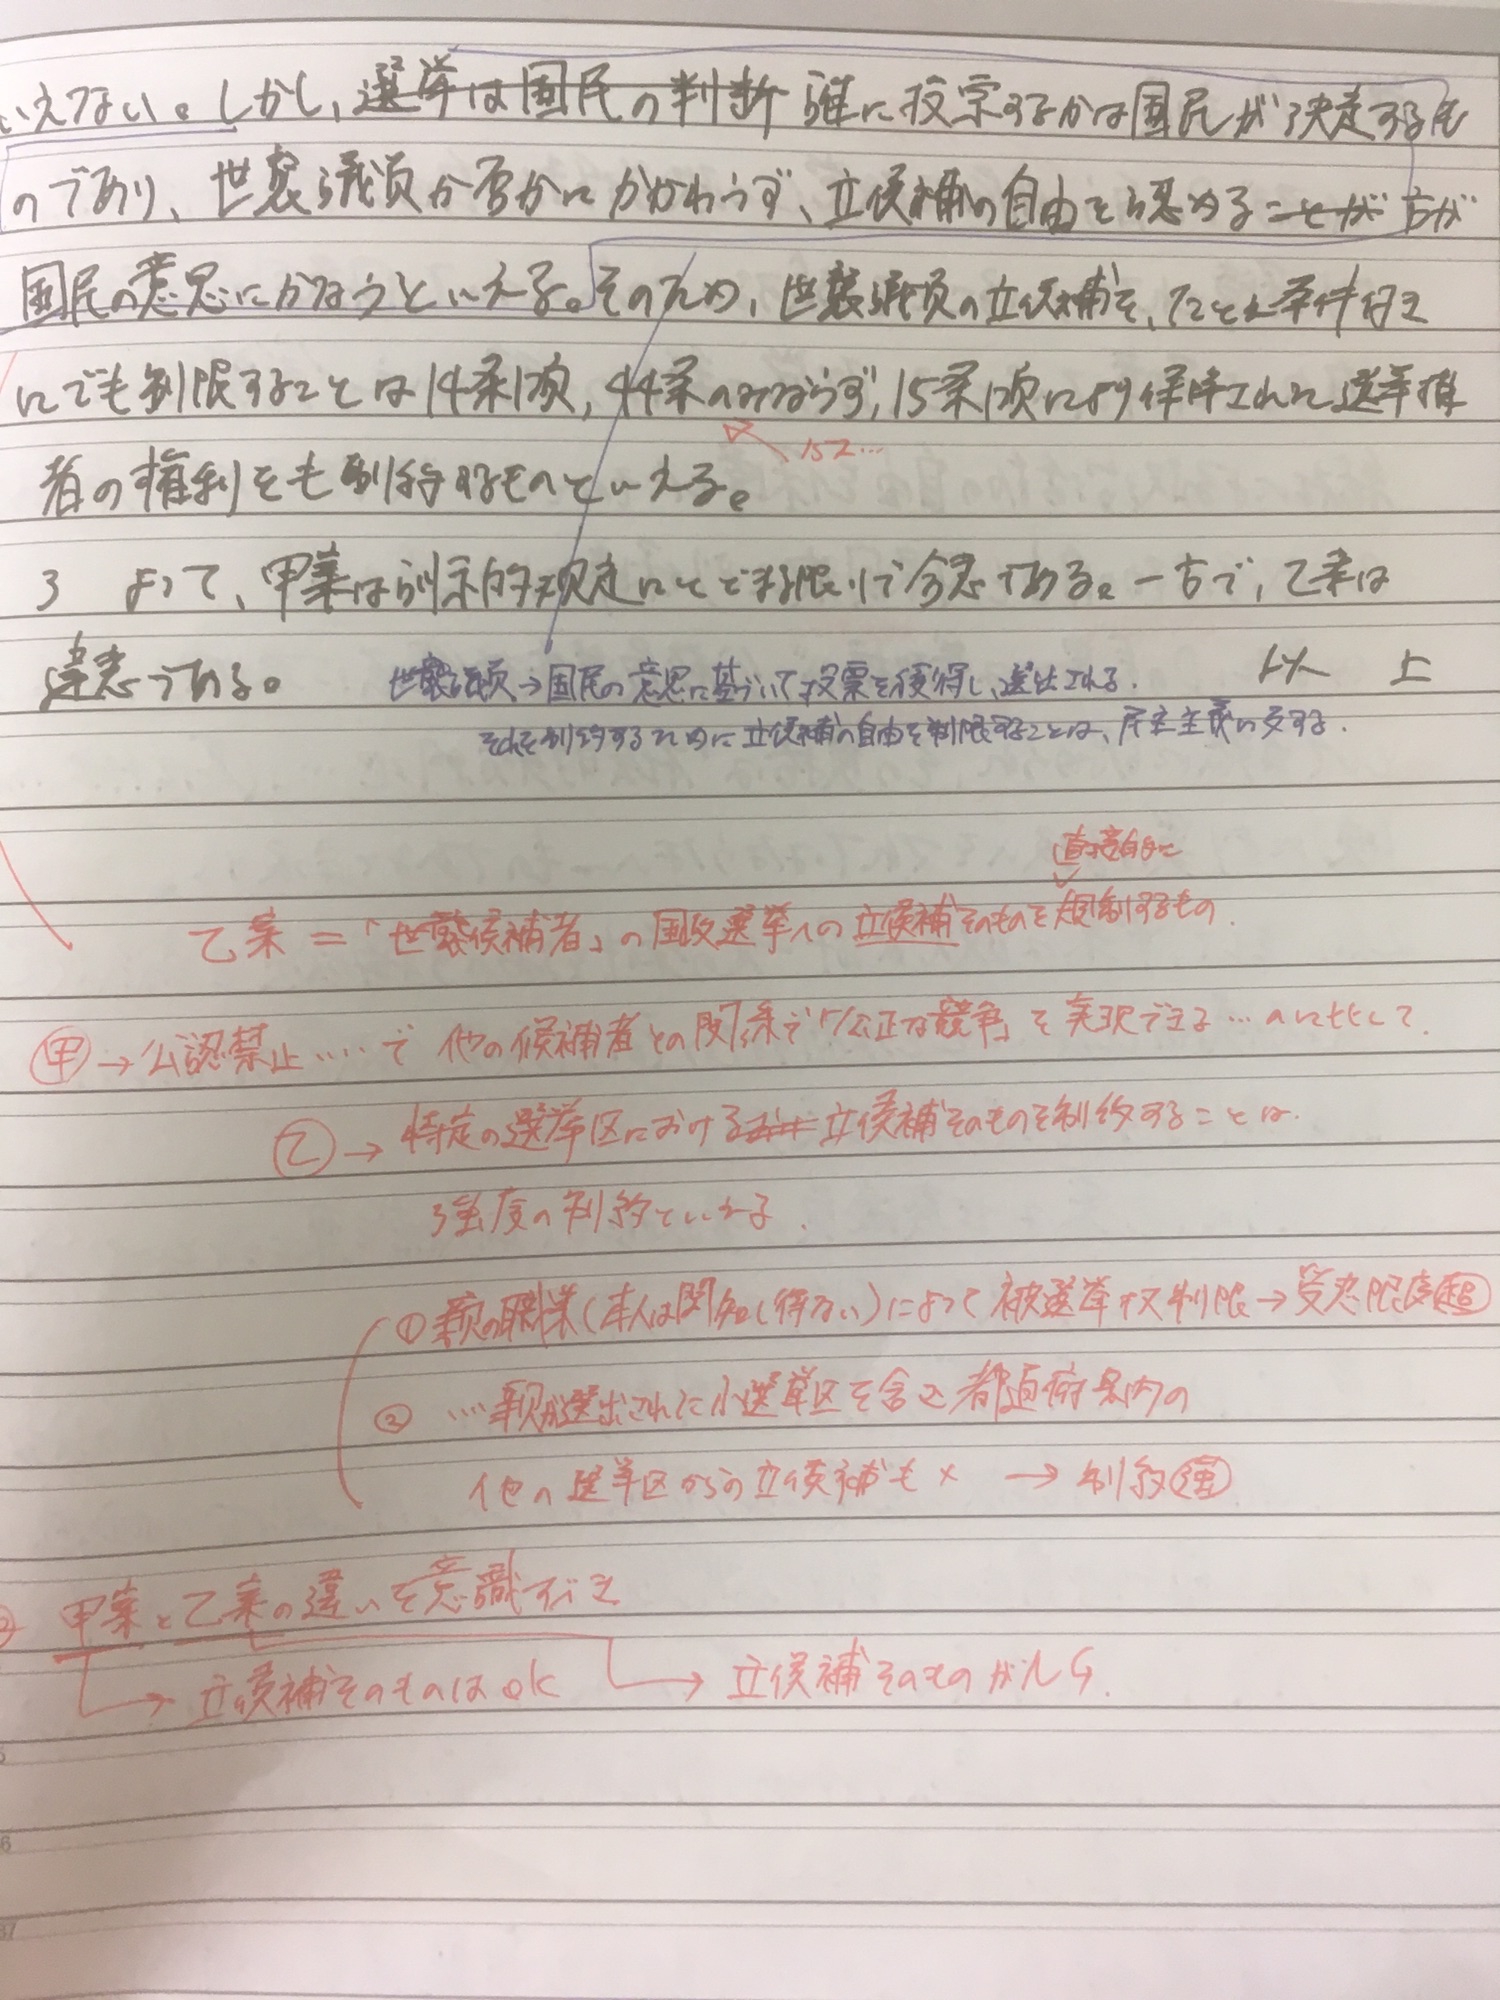 いえない。しかし、選挙は国民の判断 誰に投票するかは国民が決定するも
のであり、世襲議員か否かにかかわらず、立候補の自由を認めることが 方が
国民の意思にかなうといえる。そのため、世襲議員の立候補を、たとえ条件付き
にでも制限することは14条1項，44条のみならず，15条1項により保障された選挙権
者の権利をも制約するものといえる。
152…
3 よって、甲案は訓示的規定にとどまる限りで合憲である。一方で，乙案は
違憲である。
以 上
世襲議員→国民の意思に基づいて投票を獲得し、選出される．
それを制約するために立候補の自由を制限することは、民主主義に反する．
直接的に
乙案＝「世襲候補者」の国政選挙への立候補そのものを規制するもの．
甲→公認禁止……で 他の候補者との関係で「公正な競争」を実現できる…のに比して．
乙→特定の選挙区における 立候補そのものを制約することは．
強度の制約といえる．
①親の職業（本人は関知し得ない）によって被選挙権制限→受忍限度超
② …親が選出された小選挙区を含む都道府県内の
他の選挙区からの立候補も× → 制約強
甲案と乙案の違いを意識すべき
→立候補そのものはok
→立候補そのものがNG.